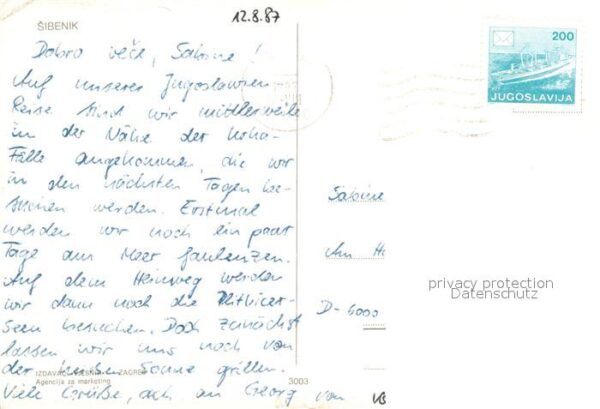 12.8.87
ŠIBENIK
200
JUGOSLAVIJA
Dobro veče, Sabine!
Auf unserer Jugoslawien-
Reise sind wir mittlerweile
in der Nähe der Krka-
Fälle angekommen, die wir
in den nächsten Tagen be-
suchen werden. Erstmal
werden wir noch ein paar
Tage am Meer faulenzen.
Auf dem Heimweg werden
wir dann noch die Plitvicer-
Seen besuchen. Doch zunächst
lassen wir uns noch von
der heißen Sonne grillen.
Viele Grüße, auch an Georg von
Sabine
Am
D-6000
privacy protection
Datenschutz
IZDAVAČ ZAGREB
Agencija za marketing
3003